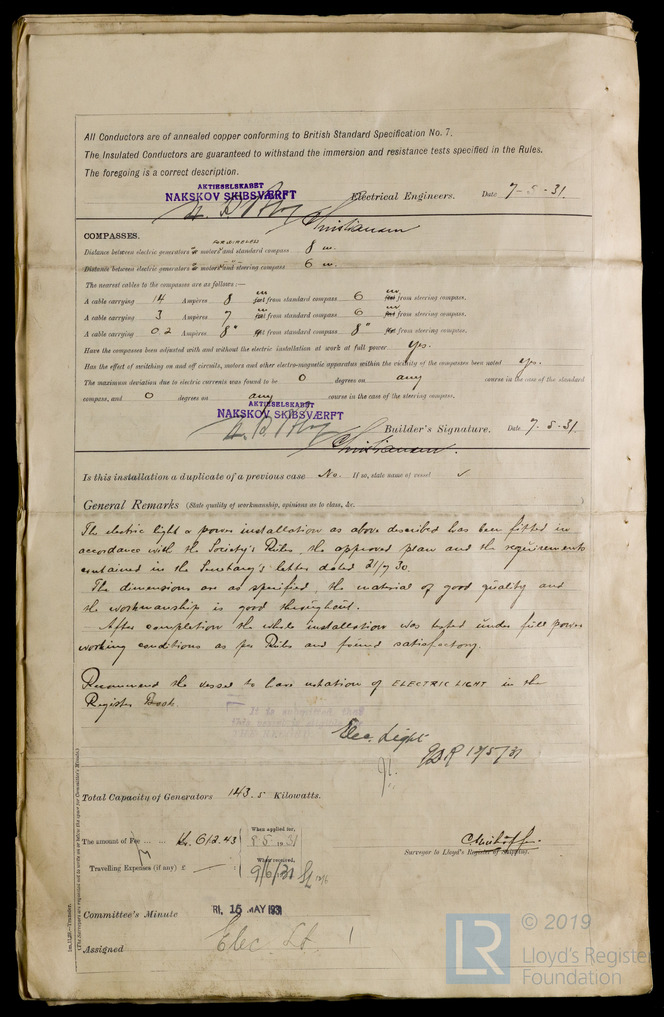 All Conductors are of annealed copper conforming to British Standard Specification No. 7.
The Insulated Conductors are guaranteed to withstand the immersion and resistance tests specified in the Rules.
The foregoing is a correct description.
AKTIESELSKABET
NAKSKOV SKIBSVÆRFT Electrical Engineers. Date 7-5-31.
Christiansen
COMPASSES.
FOR WIRELESS
Distance between electric generators or motors and standard compass 8 m.
Distance between electric generators or motors and steering compass 6 m.
The nearest cables to the compasses are as follows:—
A cable carrying 14 Ampères 8 m feet from standard compass 6 m feet from steering compass.
A cable carrying 3 Ampères 7 m feet from standard compass 6 m feet from steering compass.
A cable carrying 0.2 Ampères 8" feet from standard compass 8" feet from steering compass.
Have the compasses been adjusted with and without the electric installation at work at full power yes.
Has the effect of switching on and off circuits, motors and other electro-magnetic apparatus within the vicinity of the compasses been noted yes.
The maximum deviation due to electric currents was found to be 0 degrees on any course in the case of the standard
compass, and 0 degrees on any course in the case of the steering compass.
AKTIESELSKABET
NAKSKOV SKIBSVÆRFT
Builder's Signature. Date 7-5-31.
Christiansen.
Is this installation a duplicate of a previous case No. If so, state name of vessel ✓
General Remarks (State quality of workmanship, opinions as to class, &c.
The electric light & power installation as above described has been fitted in
accordance with the Society's Rules, the approved plan and the requirements
contained in the Secretary's letter dated 21/7 30.
The dimensions are as specified, the material of good quality and
the workmanship is good throughout.
After completion the whole installation was tested under full power
working conditions as per Rules and found satisfactory.
Recommend the vessel to have notation of ELECTRIC LIGHT in the
Register Book.
It is submitted that
this vessel is eligible for
THE RECORD
Elec. Light
12/5/31
Total Capacity of Generators 143.5 Kilowatts.
The amount of Fee ... ... Kr. 612.43
When applied for,
8.5.1931
Travelling Expenses (if any) £ —
When received,
9/6/31
Surveyor to Lloyd's Register of Shipping.
Committee's Minute FRI. 15 MAY 1931
Assigned Elec. Lt.
1m.11.29.—Transfer.
(The Surveyors are requested not to write on or below the space for Committee's Minute.)
© 2019
LR
Lloyd's Register
Foundation